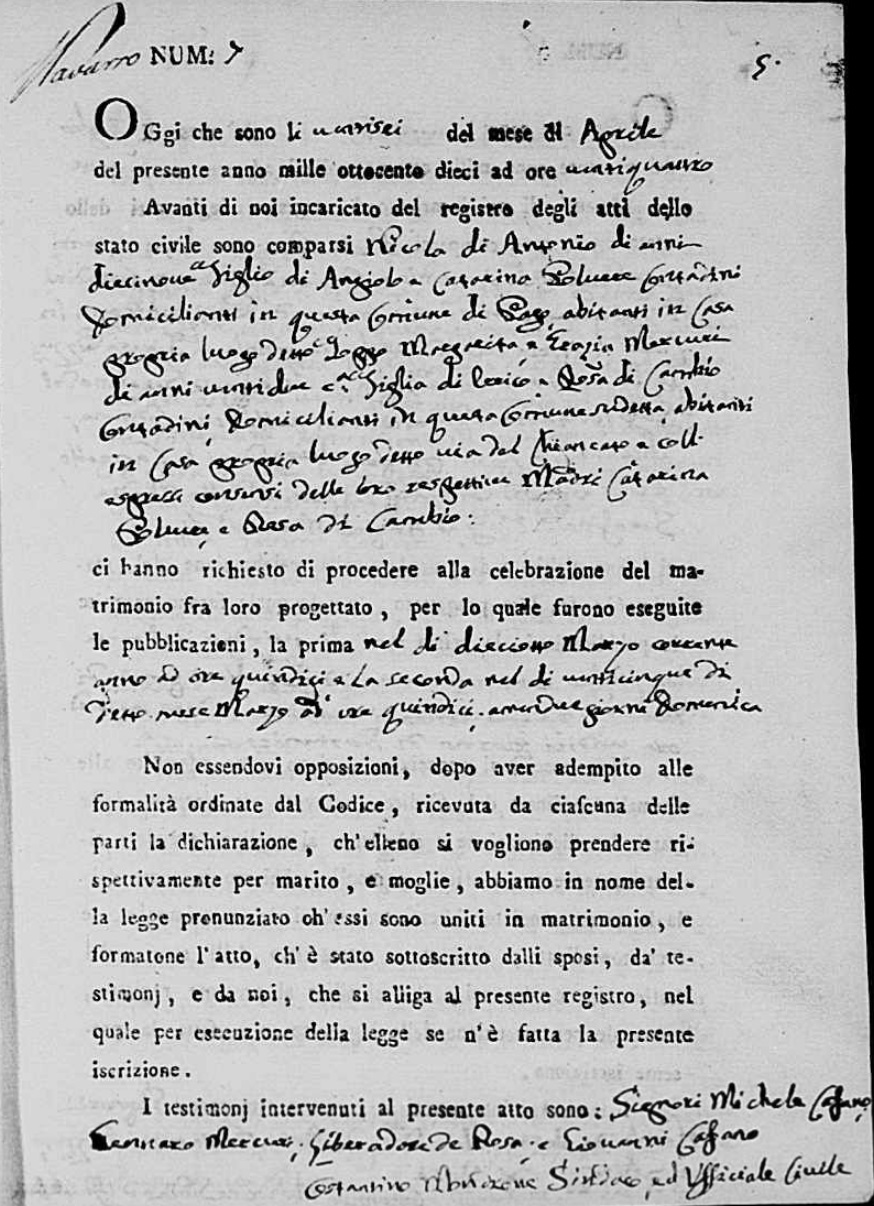 Navarro NUM: 7
5.
OGgi che sono li ventisei del mese di Aprile
del presente anno mille ottocento dieci ad ore ventiquattro
Avanti di noi incaricato del registro degli atti dello
stato civile sono comparsi Nicola di Antonio di anni
diecinove figlio di Angiolo e Catarina Contadini
Domicilianti in questa Comune di Pago abitanti in Casa
propria luogo detto Pozzo Margarita e Grazia Mercuri
di anni ventidue figlia di e Rosa di Cambio
Contadini Domicilianti in questa Comune sudetta abitanti
in Casa propria luogo detto via del e coll'
espressi consensi delle loro respettive Madri Catarina
e Rosa di Cambio:
ci hanno richiesto di procedere alla celebrazione del ma-
trimonio fra loro progettato, per lo quale furono eseguite
le pubblicazioni, la prima nel dì dieciotto Marzo corrente
anno ad ore quindici e La seconda nel dì venticinque di
detto mese Marzo ad ore quindici. amendue giorni Domenica
Non essendovi opposizioni, dopo aver adempito alle
formalità ordinate dal Codice, ricevuta da ciascuna delle
parti la dichiarazione, ch' elleno si vogliono prendere ri-
spettivamente per marito, e moglie, abbiamo in nome del-
la legge pronunziato ch' essi sono uniti in matrimonio, e
formatone l' atto, ch' è stato sottoscritto dalli sposi, da' te-
stimonj, e da noi, che si alliga al presente registro, nel
quale per esecuzione della legge se n' è fatta la presente
iscrizione.
I testimonj intervenuti al presente atto sono: Signori Michele Caffano,
Gennaro Mercuri, Liberadore de Rosa, e Giovanni Caffano
Costantino Sindaco, ed Ufficiale Civile